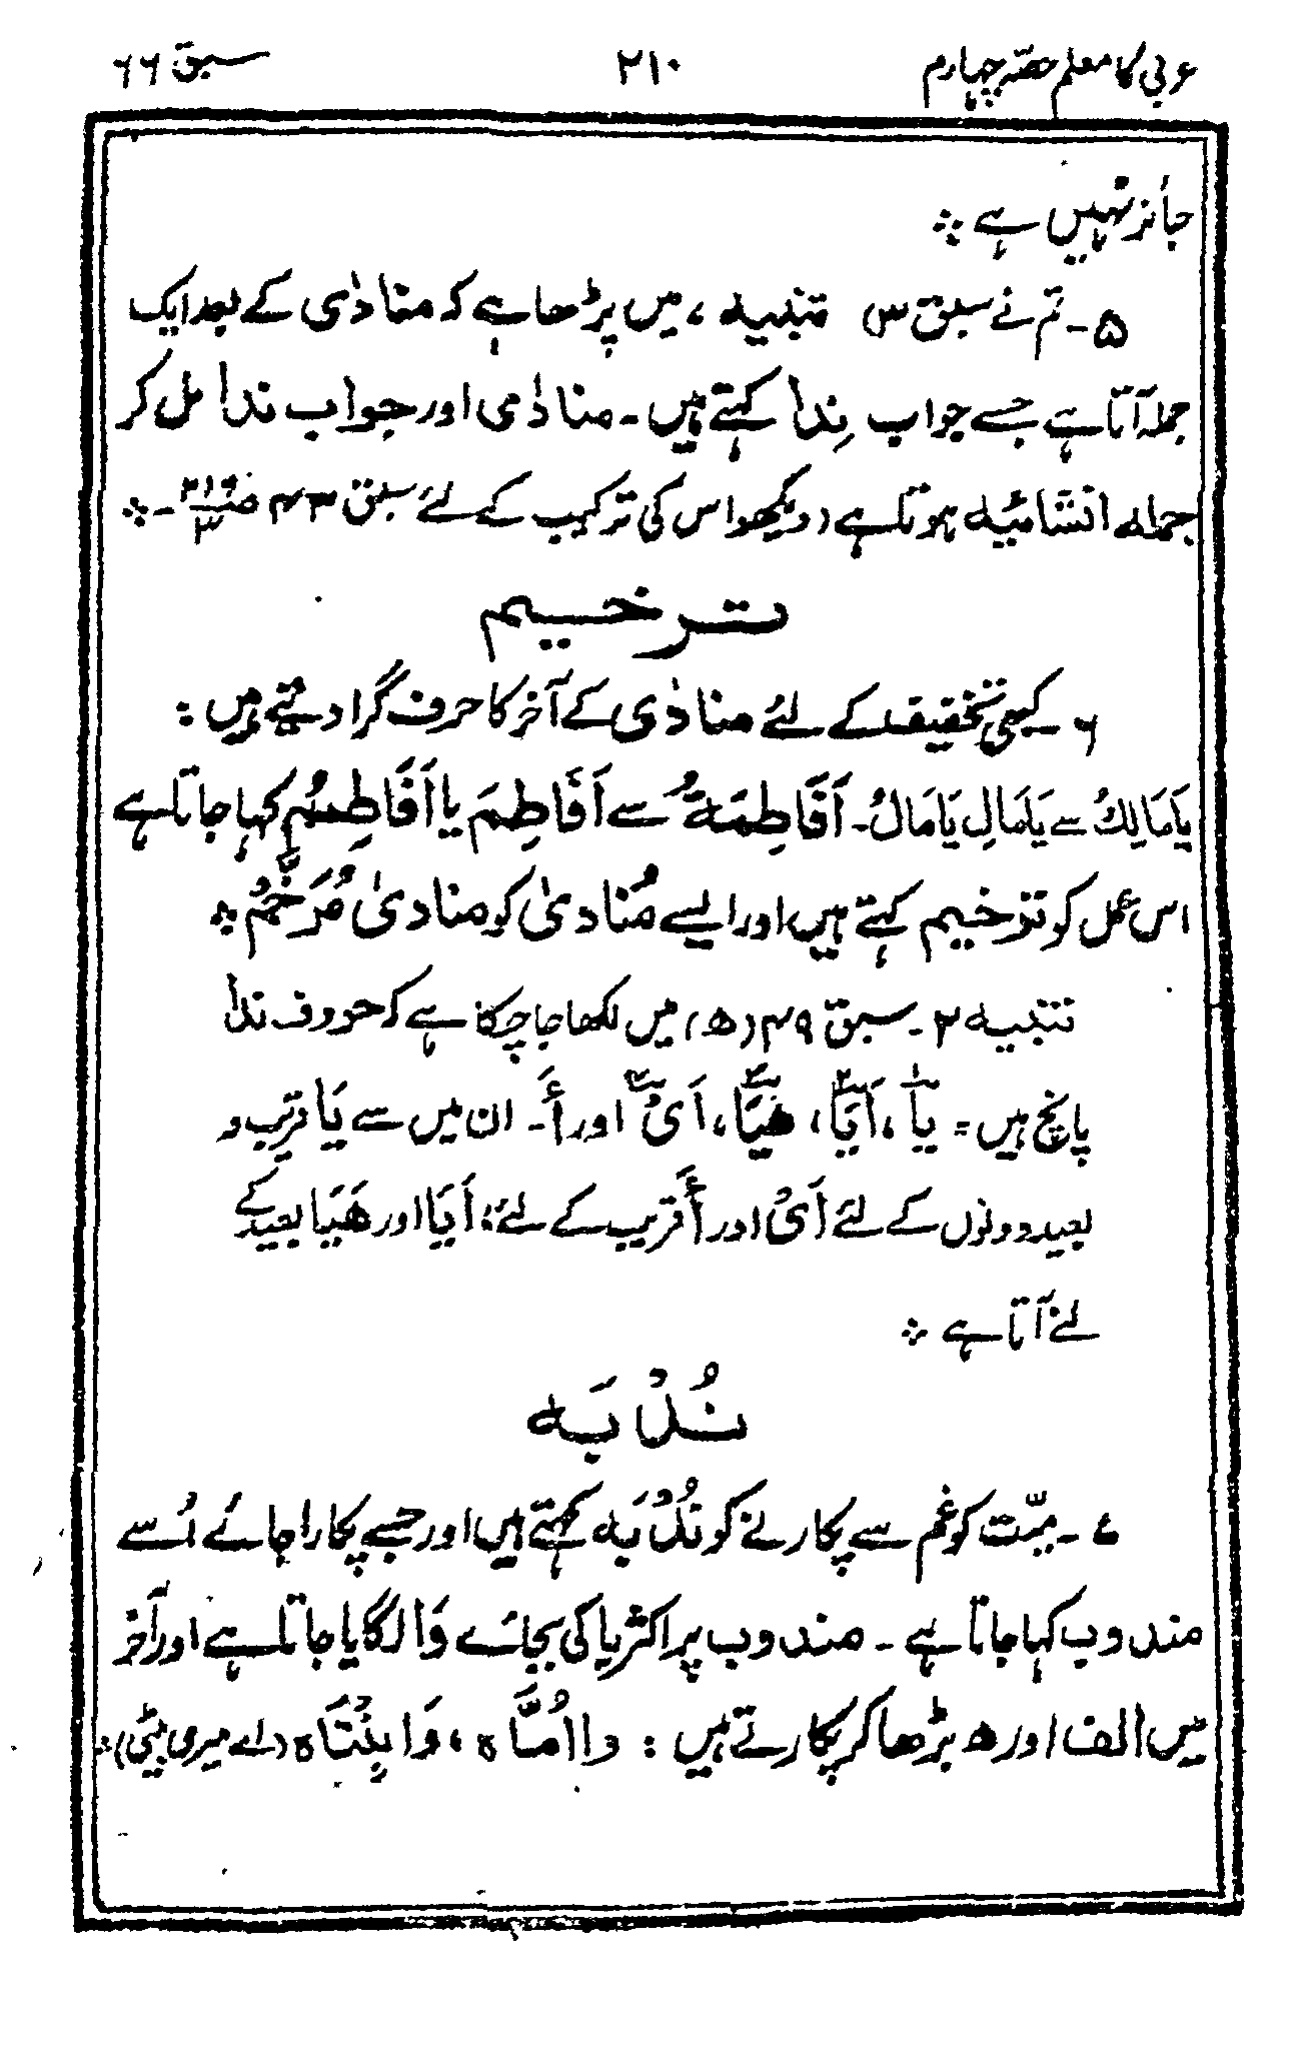 عربی کا معلم حصّہ چہارم ۲۱۰ سبق ۶۶
جائز نہیں ہے ❊
۵ ۔ تم نے سبق س تنبیہ ، میں پڑھا ہے کہ منادٰی کے بعد ایک
جملہ آتا ہے جسے جواب نِدا کہتے ہیں ۔ منادٰی اور جواب ندا مل کر
جملہ انشائیہ ہوتا ہے (دیکھو اس کی ترکیب کے لئے سبق ۴۳
ترخیم
۶ ۔ کبھی تخفیف کے لئے منادٰی کے آخر کا حرف گرا دیتے ہیں :
یَامَالِكُ سے یَامَالِ یَامَالُ ۔ اَفَاطِمَةُ سے اَفَاطِمَ یا اَفَاطِمُ کہا جاتا ہے
اس عمل کو ترخیم کہتے ہیں اور ایسے مُنادیٰ کو منادیٰ مُرَخَّمْ ❊
تنبیہ ۲ ۔ سبق ۴۹ (ھ) میں لکھا جا چکا ہے کہ حروف ندا
پانچ ہیں = یَا ، اَیَا ، هَیَا ، اَیْ اور أَ ۔ ان میں سے یَا قریب و
بعید دونوں کے لئے اَیْ اور أَ قریب کے لئے ؛ اَیَا اور هَیَا بعید کے
لئے آتا ہے ❊
نُدْبَہ
۷ ۔ میّت کو غم سے پکارنے کو نُدْبَہ کہتے ہیں اور جسے پکارا جائے اُسے
مندوب کہا جاتا ہے ۔ مندوب پر اکثر یا کی بجائے وَا لگایا جاتا ہے اور آخر
میں الف اور ہ بڑھا کر پکارتے ہیں : وا اُمَّاہ ، وَا بِنْتَاہ (اے میری بیٹی) ❊